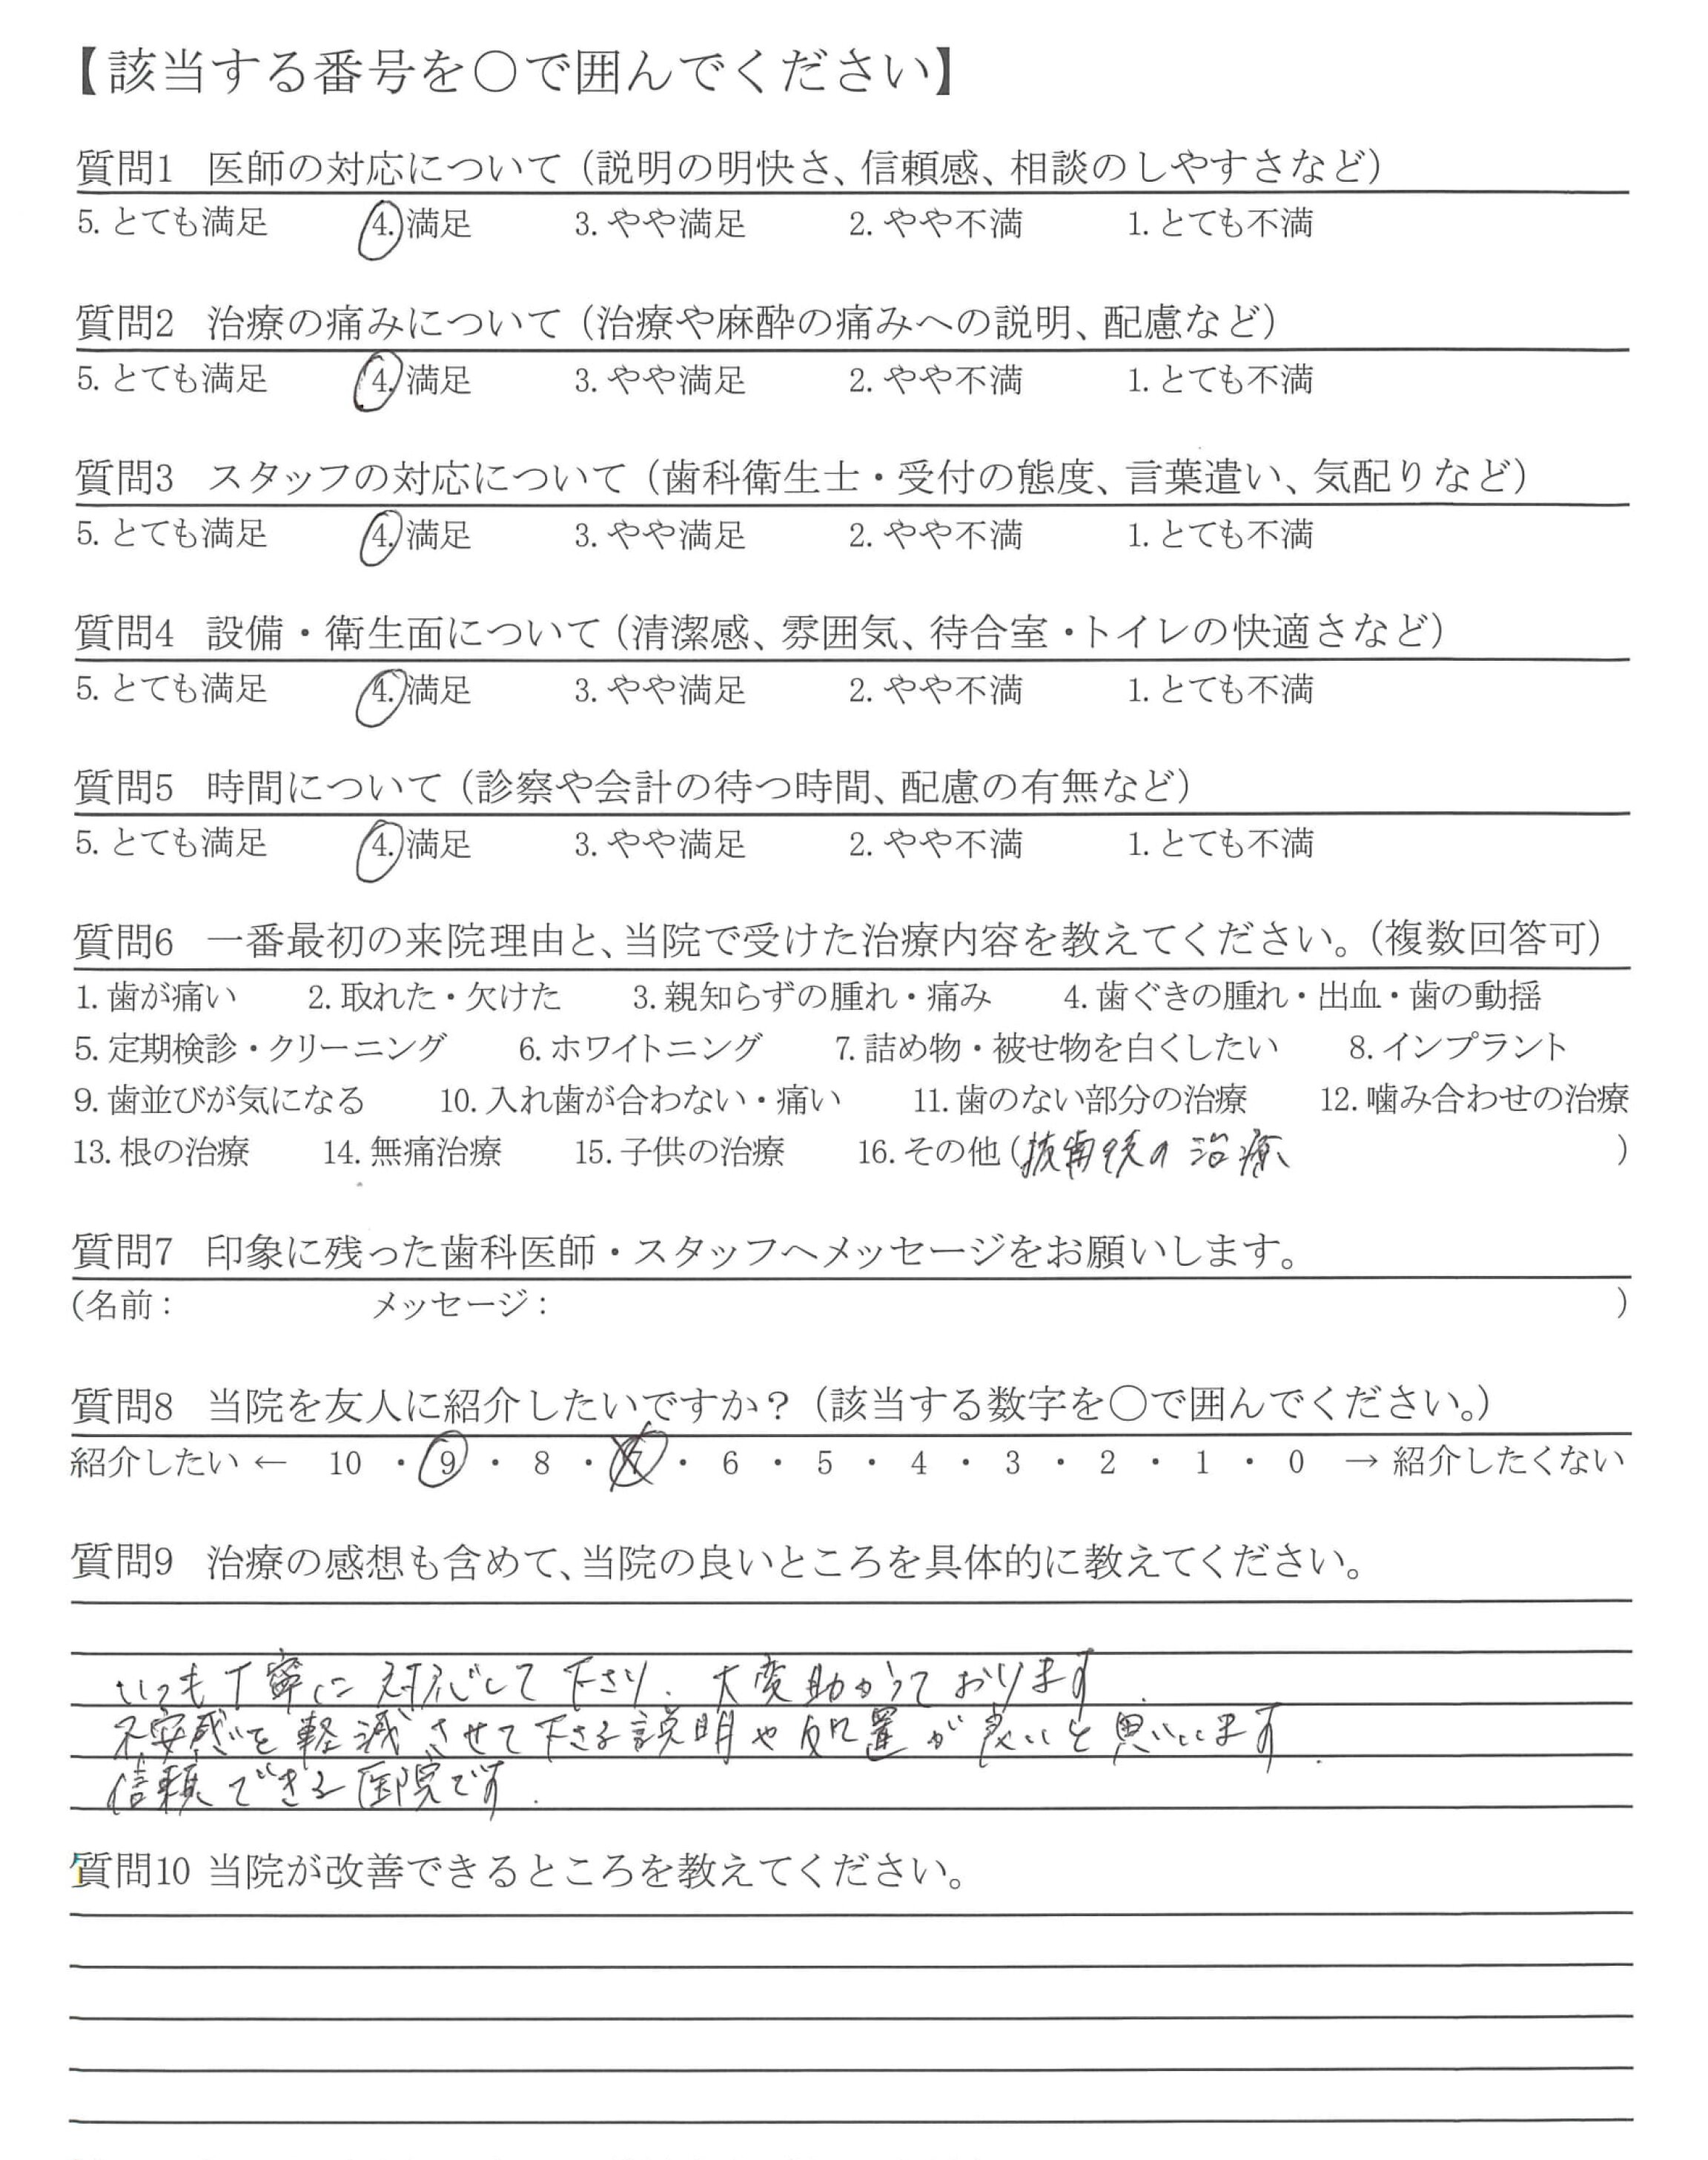 【該当する番号を○で囲んでください】
質問1 医師の対応について（説明の明快さ、信頼感、相談のしやすさなど）
5. とても満足 4. 満足 3. やや満足 2. やや不満 1. とても不満
質問2 治療の痛みについて（治療や麻酔の痛みへの説明、配慮など）
5. とても満足 4. 満足 3. やや満足 2. やや不満 1. とても不満
質問3 スタッフの対応について（歯科衛生士・受付の態度、言葉遣い、気配りなど）
5. とても満足 4. 満足 3. やや満足 2. やや不満 1. とても不満
質問4 設備・衛生面について（清潔感、雰囲気、待合室・トイレの快適さなど）
5. とても満足 4. 満足 3. やや満足 2. やや不満 1. とても不満
質問5 時間について（診察や会計の待つ時間、配慮の有無など）
5. とても満足 4. 満足 3. やや満足 2. やや不満 1. とても不満
質問6 一番最初の来院理由と、当院で受けた治療内容を教えてください。（複数回答可）
1. 歯が痛い 2. 取れた・欠けた 3. 親知らずの腫れ・痛み 4. 歯ぐきの腫れ・出血・歯の動揺
5. 定期検診・クリーニング 6. ホワイトニング 7. 詰め物・被せ物を白くしたい 8. インプラント
9. 歯並びが気になる 10. 入れ歯が合わない・痛い 11. 歯のない部分の治療 12. 噛み合わせの治療
13. 根の治療 14. 無痛治療 15. 子供の治療 16. その他（抜歯後の治療）
質問7 印象に残った歯科医師・スタッフへメッセージをお願いします。
（名前： メッセージ： ）
質問8 当院を友人に紹介したいですか？（該当する数字を○で囲んでください。）
紹介したい ← 10 ・ 9 ・ 8 ・ 7 ・ 6 ・ 5 ・ 4 ・ 3 ・ 2 ・ 1 ・ 0 → 紹介したくない
質問9 治療の感想も含めて、当院の良いところを具体的に教えてください。
いつも丁寧に対応して下さり、大変助かっております.
不安感を軽減させて下さる説明や処置が良いと思います.
信頼できる医院です.
質問10 当院が改善できるところを教えてください。